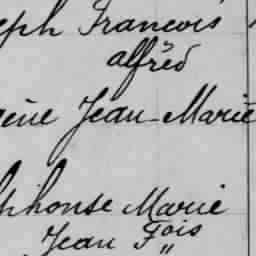 eph Francois
alfred
gène Jean-Marie
lphonse Marie
Jean Fois